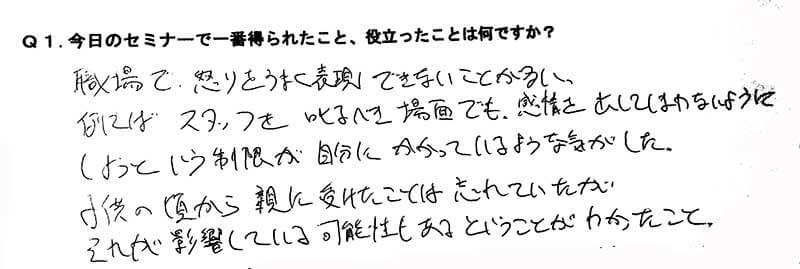 Q1.今日のセミナーで一番得られたこと、役立ったことは何ですか？
職場で、怒りをうまく表現できないことが多い、
例えば スタッフを 叱るべき場面でも、感情を出してしまわないように
しようという制限が自分にかかっているような気がした。
子供の頃から親に受けたことは忘れていたが
それが影響している可能性もあるということがわかったこと。